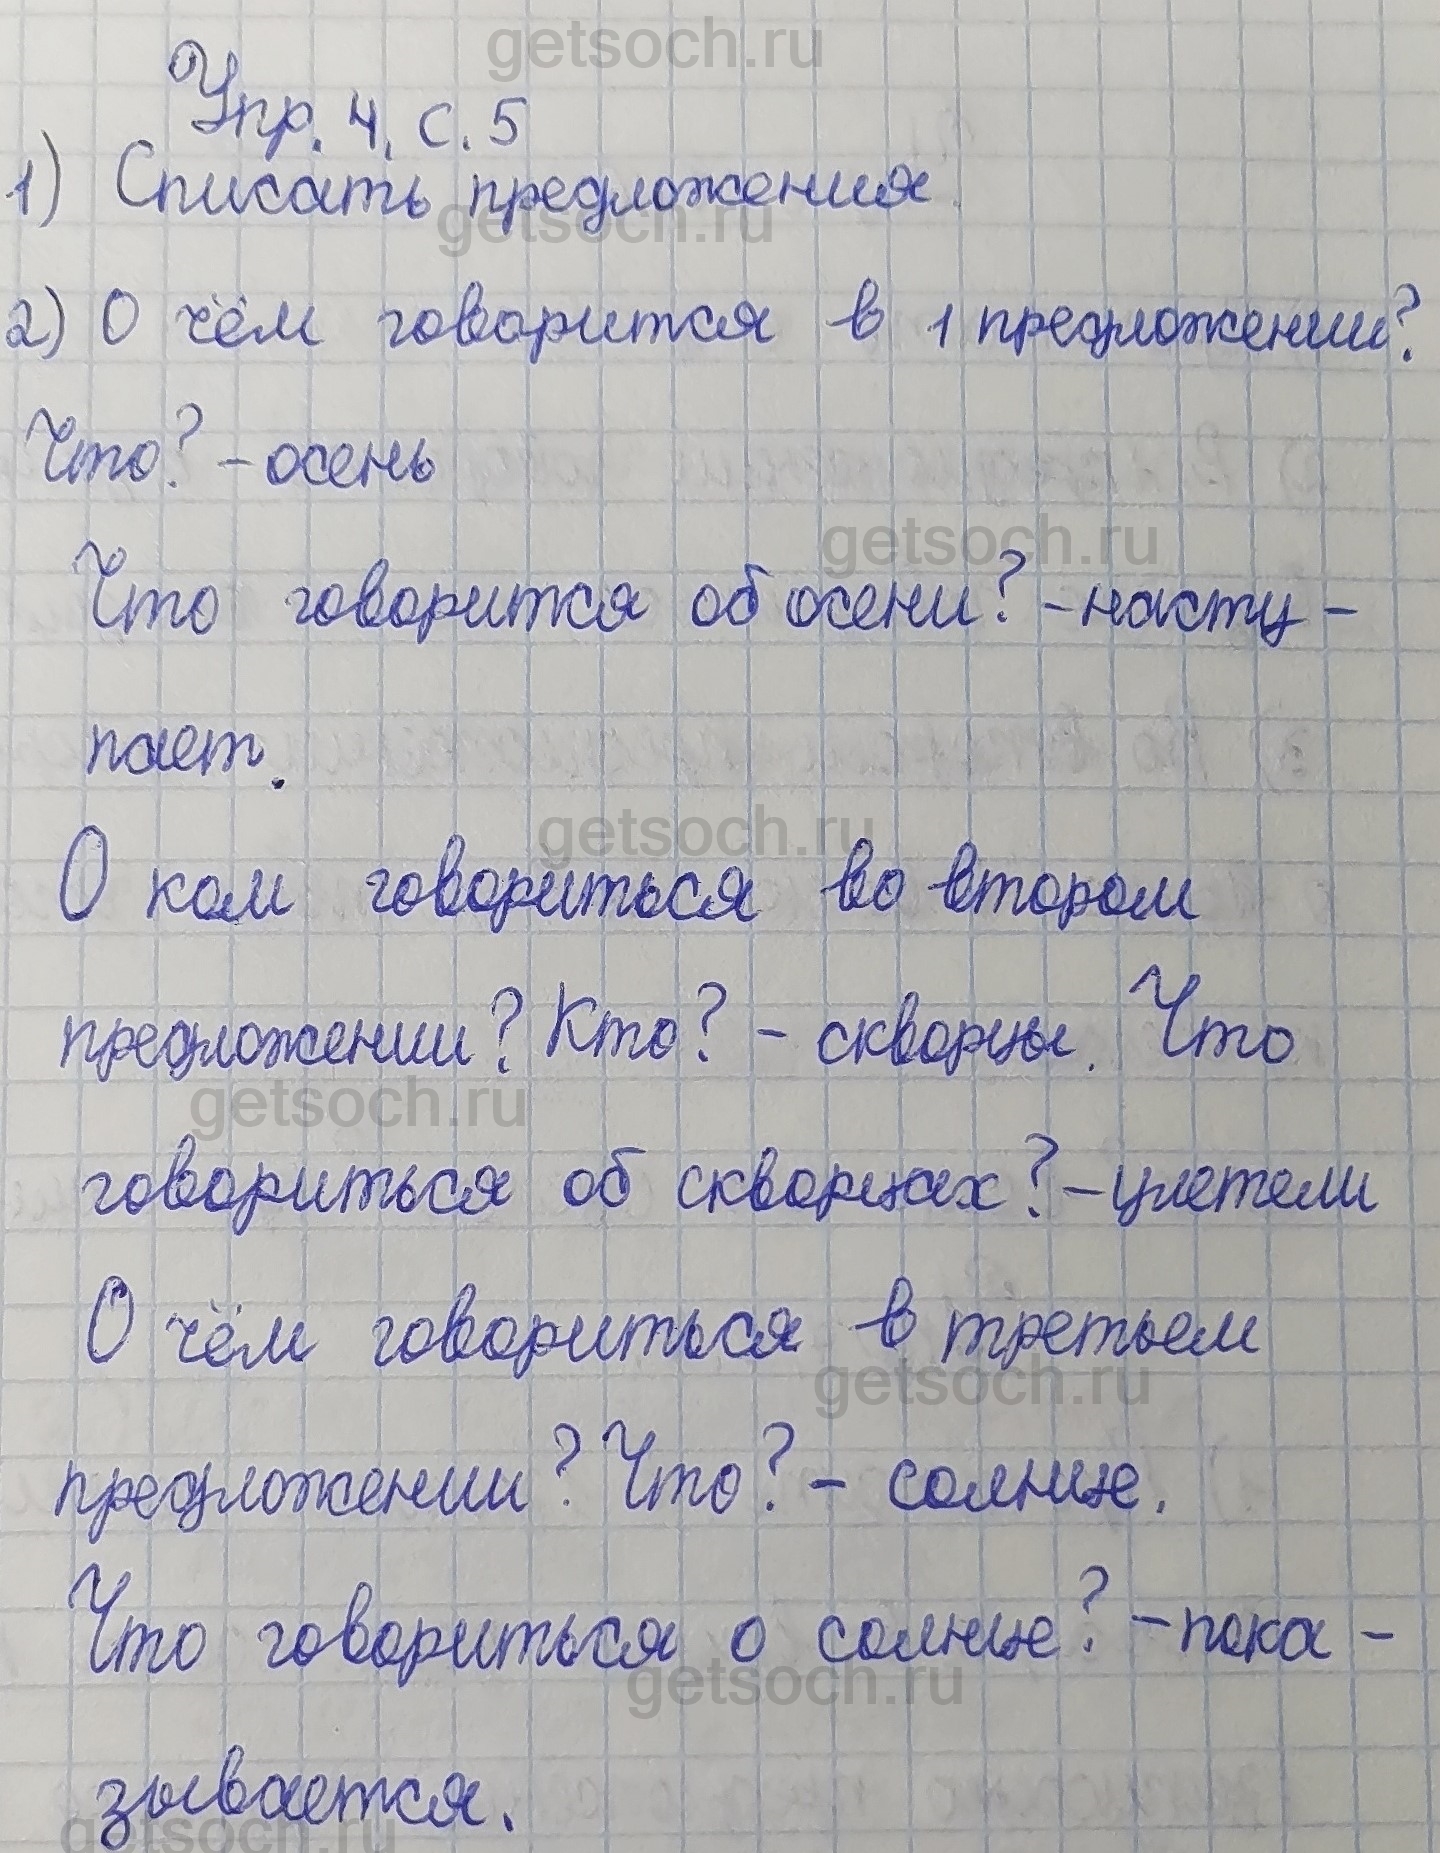 getsoch.ru
Упр. 4. с. 5
1) Списать предложения.
getsoch.ru
2) О чём говорится в 1 предложении?
Что? - осень
getsoch.ru
Что говорится об осени? - насту -
пает.
getsoch.ru
О ком говориться во втором
предложении? Кто? - скворцы. Что
getsoch.ru
говориться об скворцах? - улетели
О чём говориться в третьем
getsoch.ru
предложении? Что? - солнце.
Что говориться о солнце? - пока -
getsoch.ru
зывается.
getsoch.ru